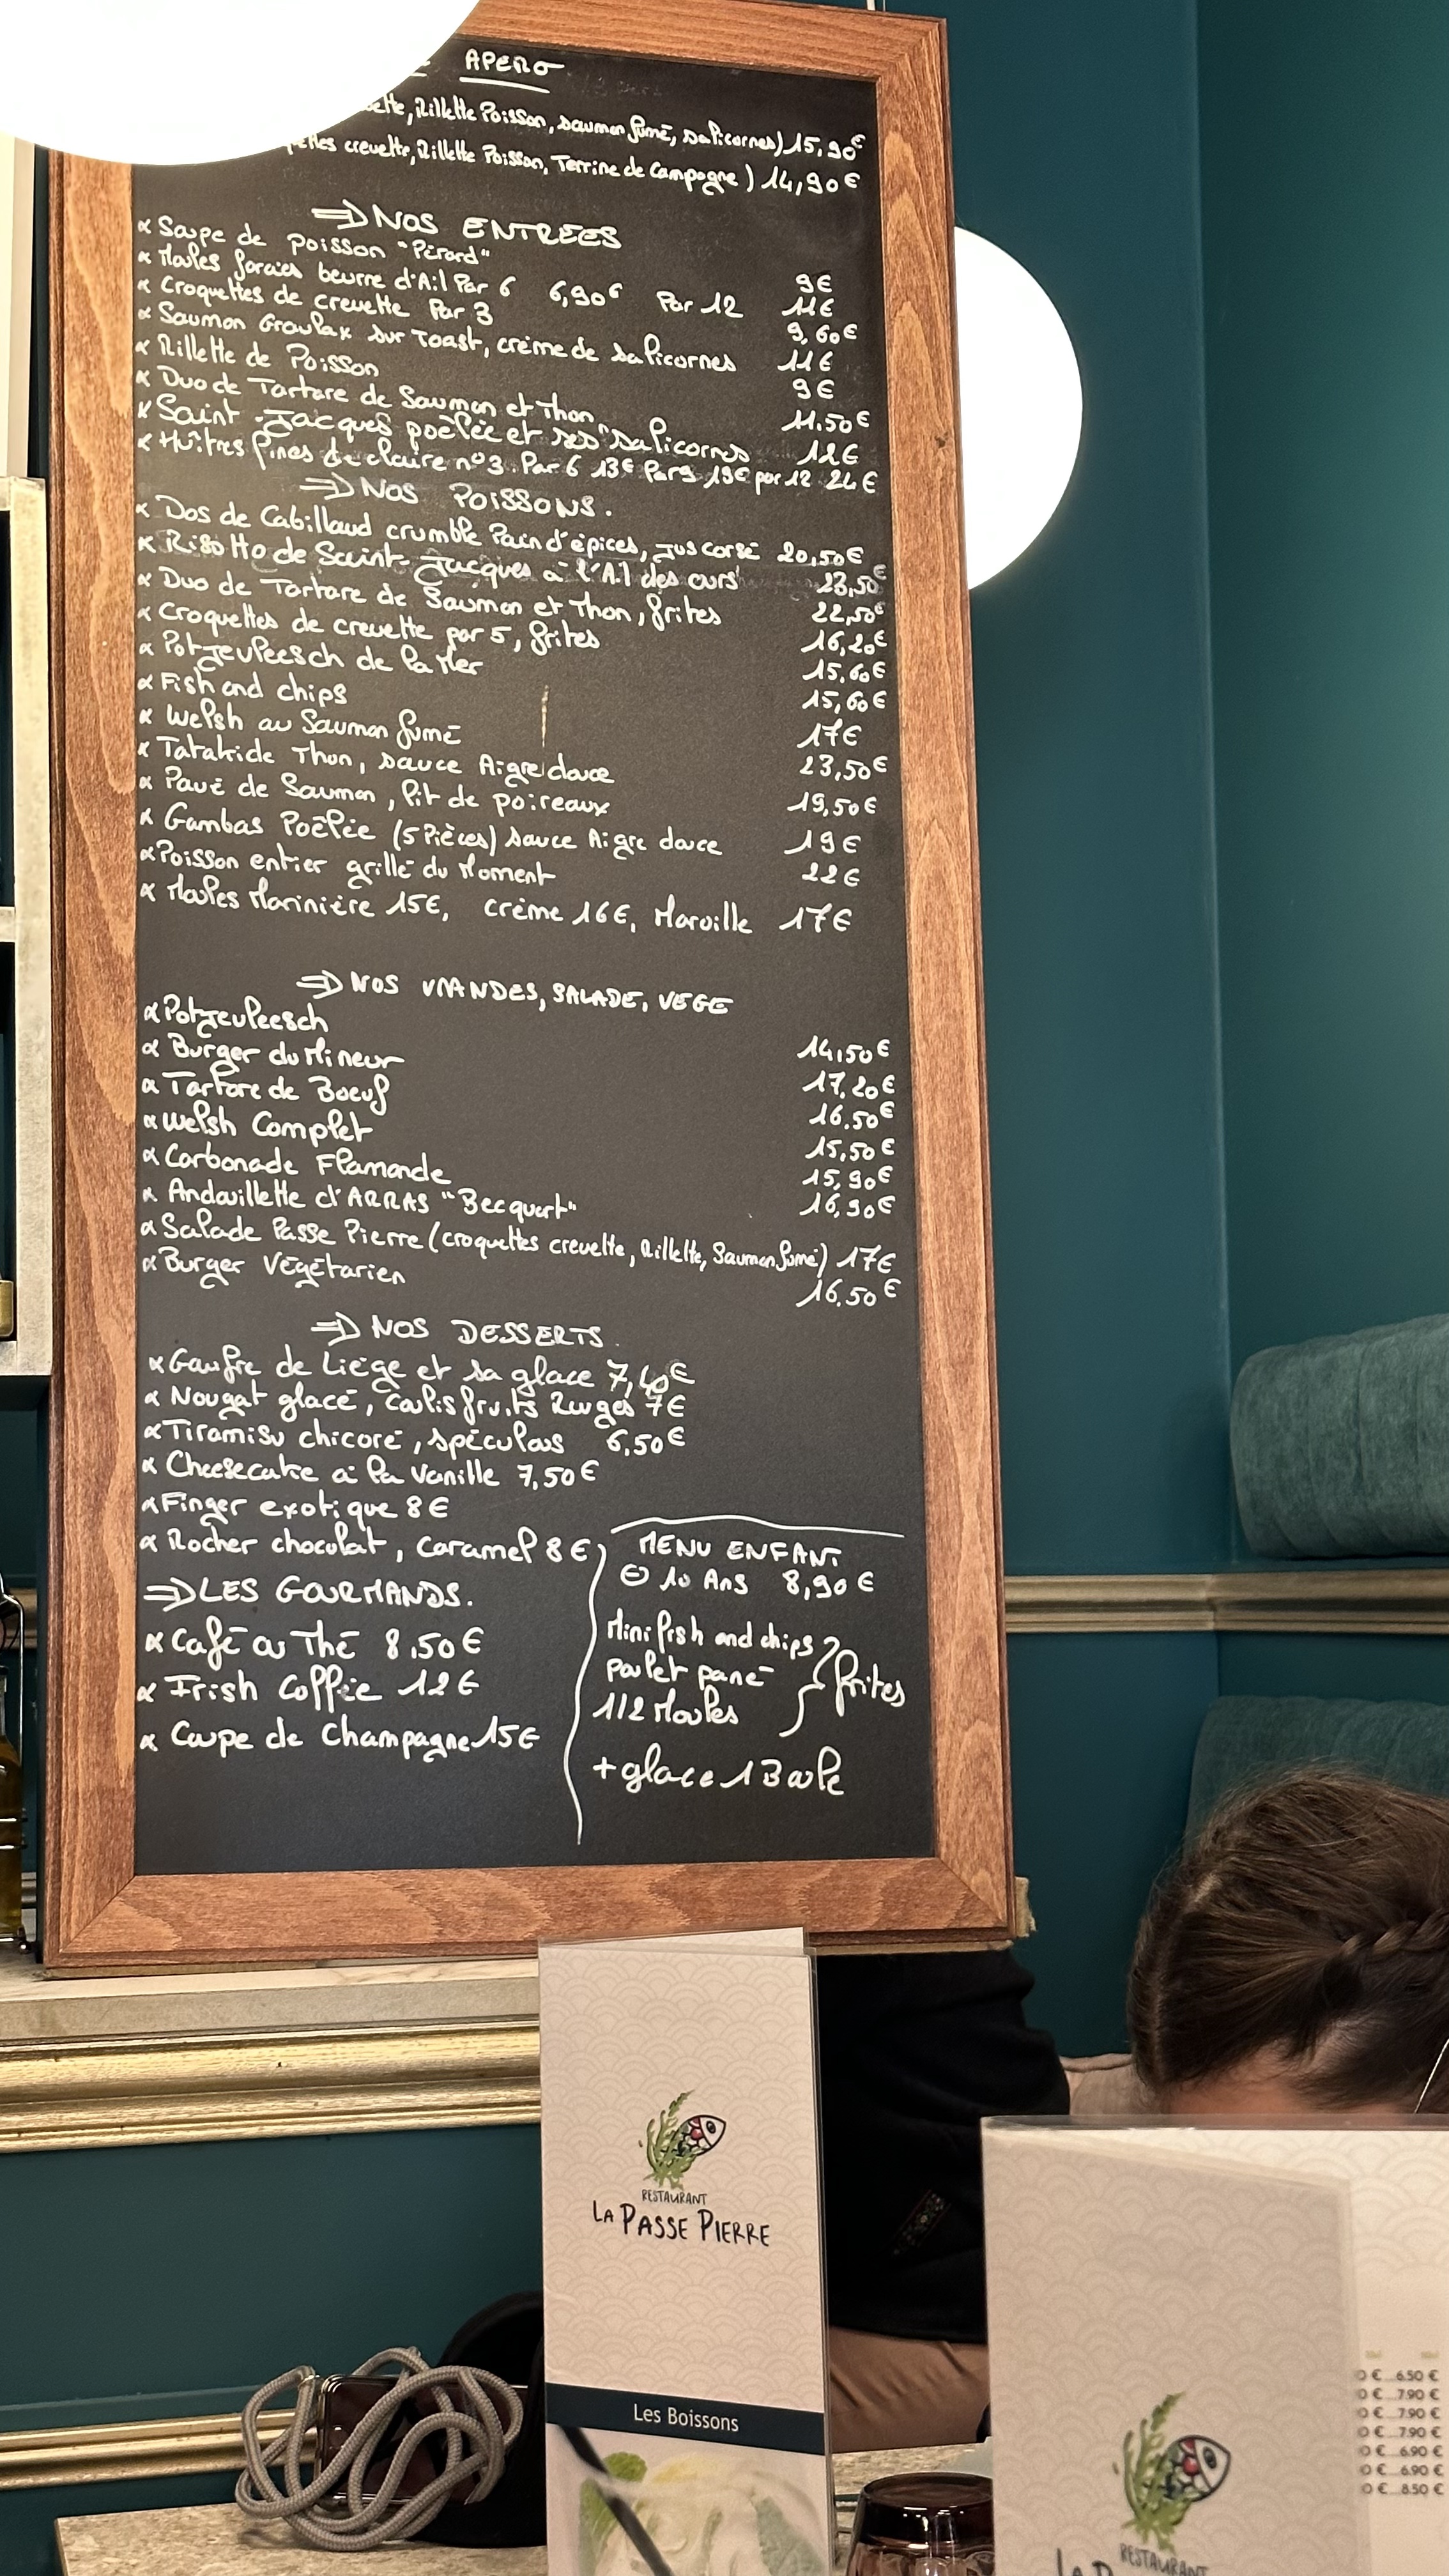 APERO
, Rillette Poisson, saumon fumé, salicornes) 15,90€
crevette, Rillette Poisson, Terrine de Campagne) 14,90€
⇒ NOS ENTREES
Soupe de poisson "Pérard" 9€
Moules farcies beurre d'Ail Par 6 6,90€ Par 12 11€
Croquettes de crevette Par 3 9,60€
Saumon Gravlax sur Toast, crème de salicornes 11€
Rillette de Poisson 9€
Duo de Tartare de Saumon et Thon 11.50€
Saint-Jacques poêlée et ses "salicornes 12€
Huîtres fines de claire n°3. Par 6 13€ Par 9 19€ par 12 24€
⇒ NOS POISSONS.
Dos de Cabillaud crumble Pain d'épices, jus corsé 20,50€
Risotto de Saint-Jacques à l'Ail des ours 23,50€
Duo de Tartare de Saumon et Thon, frites 22,50€
Croquettes de crevette par 5, frites 16,20€
Potjevleesch de la Mer 15,60€
Fish and chips 15,60€
Welsh au Saumon fumé 17€
Tataki de Thon, sauce Aigre douce 23,50€
Pavé de Saumon, lit de poireaux 19,50€
Gambas Poêlée (5 Pièces) sauce Aigre douce 19€
Poisson entier grillé du Moment 22€
Moules Marinière 15€, crème 16€, Maroille 17€
⇒ NOS VIANDES, SALADE, VEGE
Potjevleesch 14,50€
Burger du Mineur 17,20€
Tartare de Boeuf 16.50€
Welsh Complet 15,50€
Carbonade Flamande 15,90€
Andouillette d'ARRAS "Becquart" 16,90€
Salade Passe Pierre (croquettes crevette, Rillette, Saumon fumé) 17€
Burger Végétarien 16.50€
⇒ NOS DESSERTS.
Gaufre de Liège et sa glace 7,40€
Nougat glacé, coulis fruits Rouges 7€
Tiramisu chicoré, spéculoos 6,50€
Cheesecake à la vanille 7,50€
Finger exotique 8€
Rocher chocolat, caramel 8€
⇒ LES GOURMANDS.
Café ou Thé 8,50€
Irish Coffie 12€
Coupe de Champagne 15€
MENU ENFANT
⊖ 10 Ans 8,90€
Mini fish and chips
poulet pané
1/2 Moules
frites
+ glace 1 Boule
RESTAURANT
LA PASSE PIERRE
Les Boissons
€ 6.50 €
€ 7.90 €
€ 7.90 €
€ 7.90 €
€ 6.90 €
€ 6.90 €
€ 8.50 €
RESTAURANT